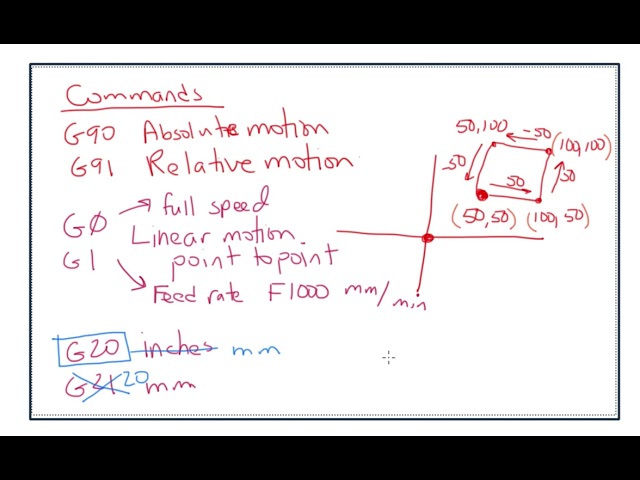 Commands
G90 Absolute motion
G91 Relative motion
G0 full speed
Linear motion
G1 point to point
Feed rate F1000 mm/min
G20 inches mm
G21 20 mm
50,100 -50 (100,100)
-50 50
50
(50,50) (100,50)